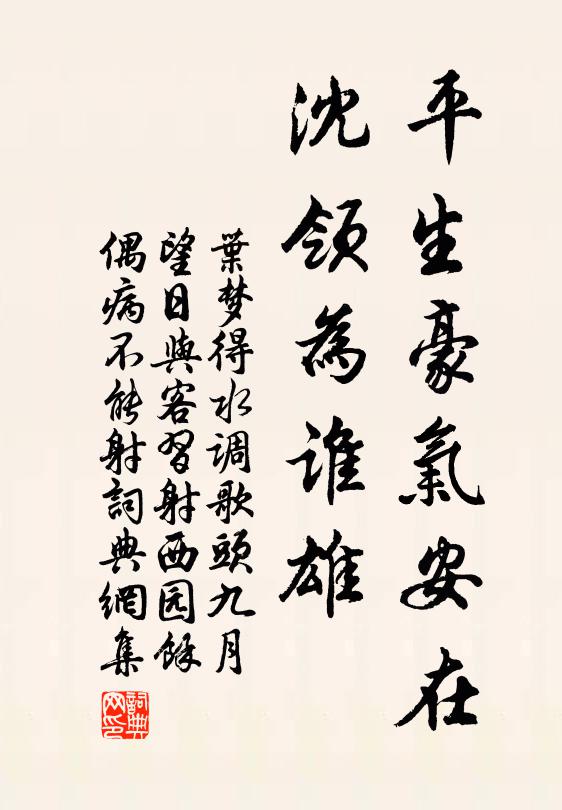 平生豪氣安在
沈领為誰雄
葉梦得水调歌頭九月
望日與客習射西园餘
偶病不能射詞典網集
詞典
网印